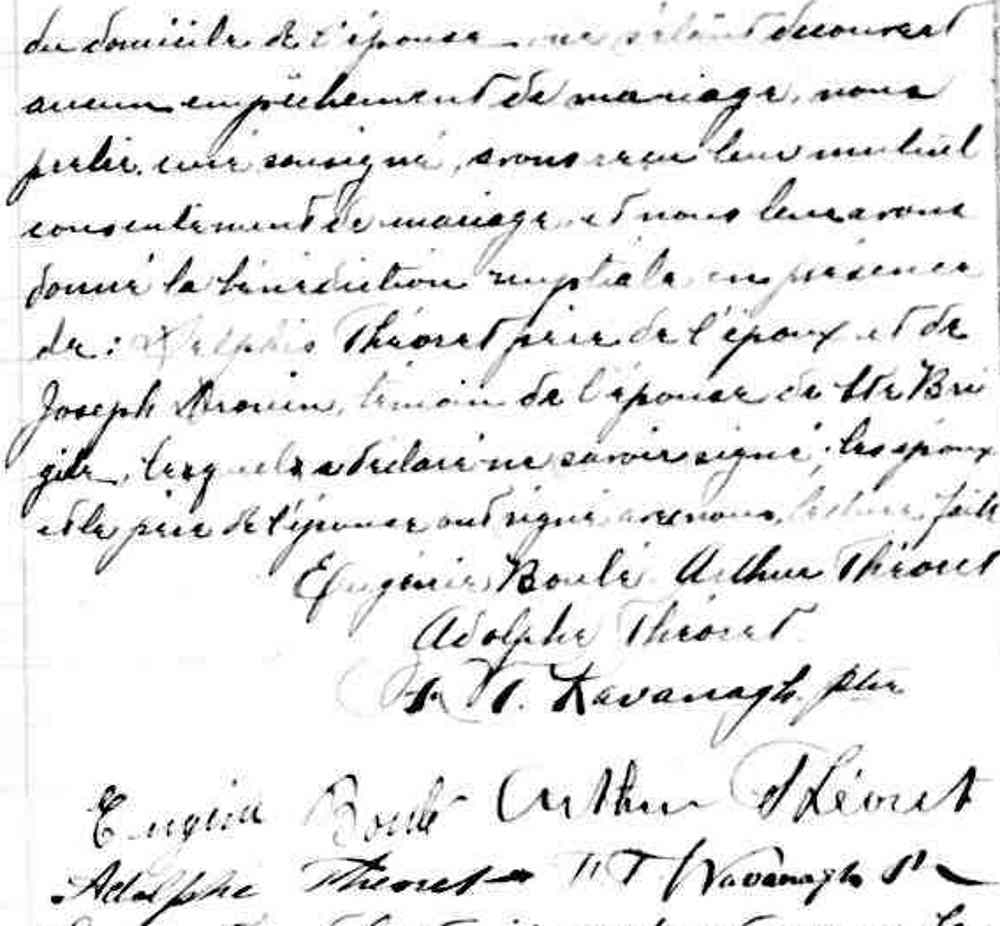 du domicile de l'épouse ne s'étant découvert
aucun empêchement de mariage, nous
prêtre, curé soussigné, avons reçu leur mutuel
consentement de mariage et nous leur avons
donné la bénédiction nuptiale en présence
de: Delphis Théoret père de l'époux et de
Joseph Drouin, témoin de l'épouse de Ste Bri
gite, lesquels a déclaré ne savoir signé; les époux
et le père de l'épouse ont signé avec nous, lecture faite
Eugénie Boulé Arthur Théoret
Adolphe Théoret
T. Kavanagh ptre
Eugénie Boulé Arthur Théoret
Adolphe Théoret T Kavanagh Ptr